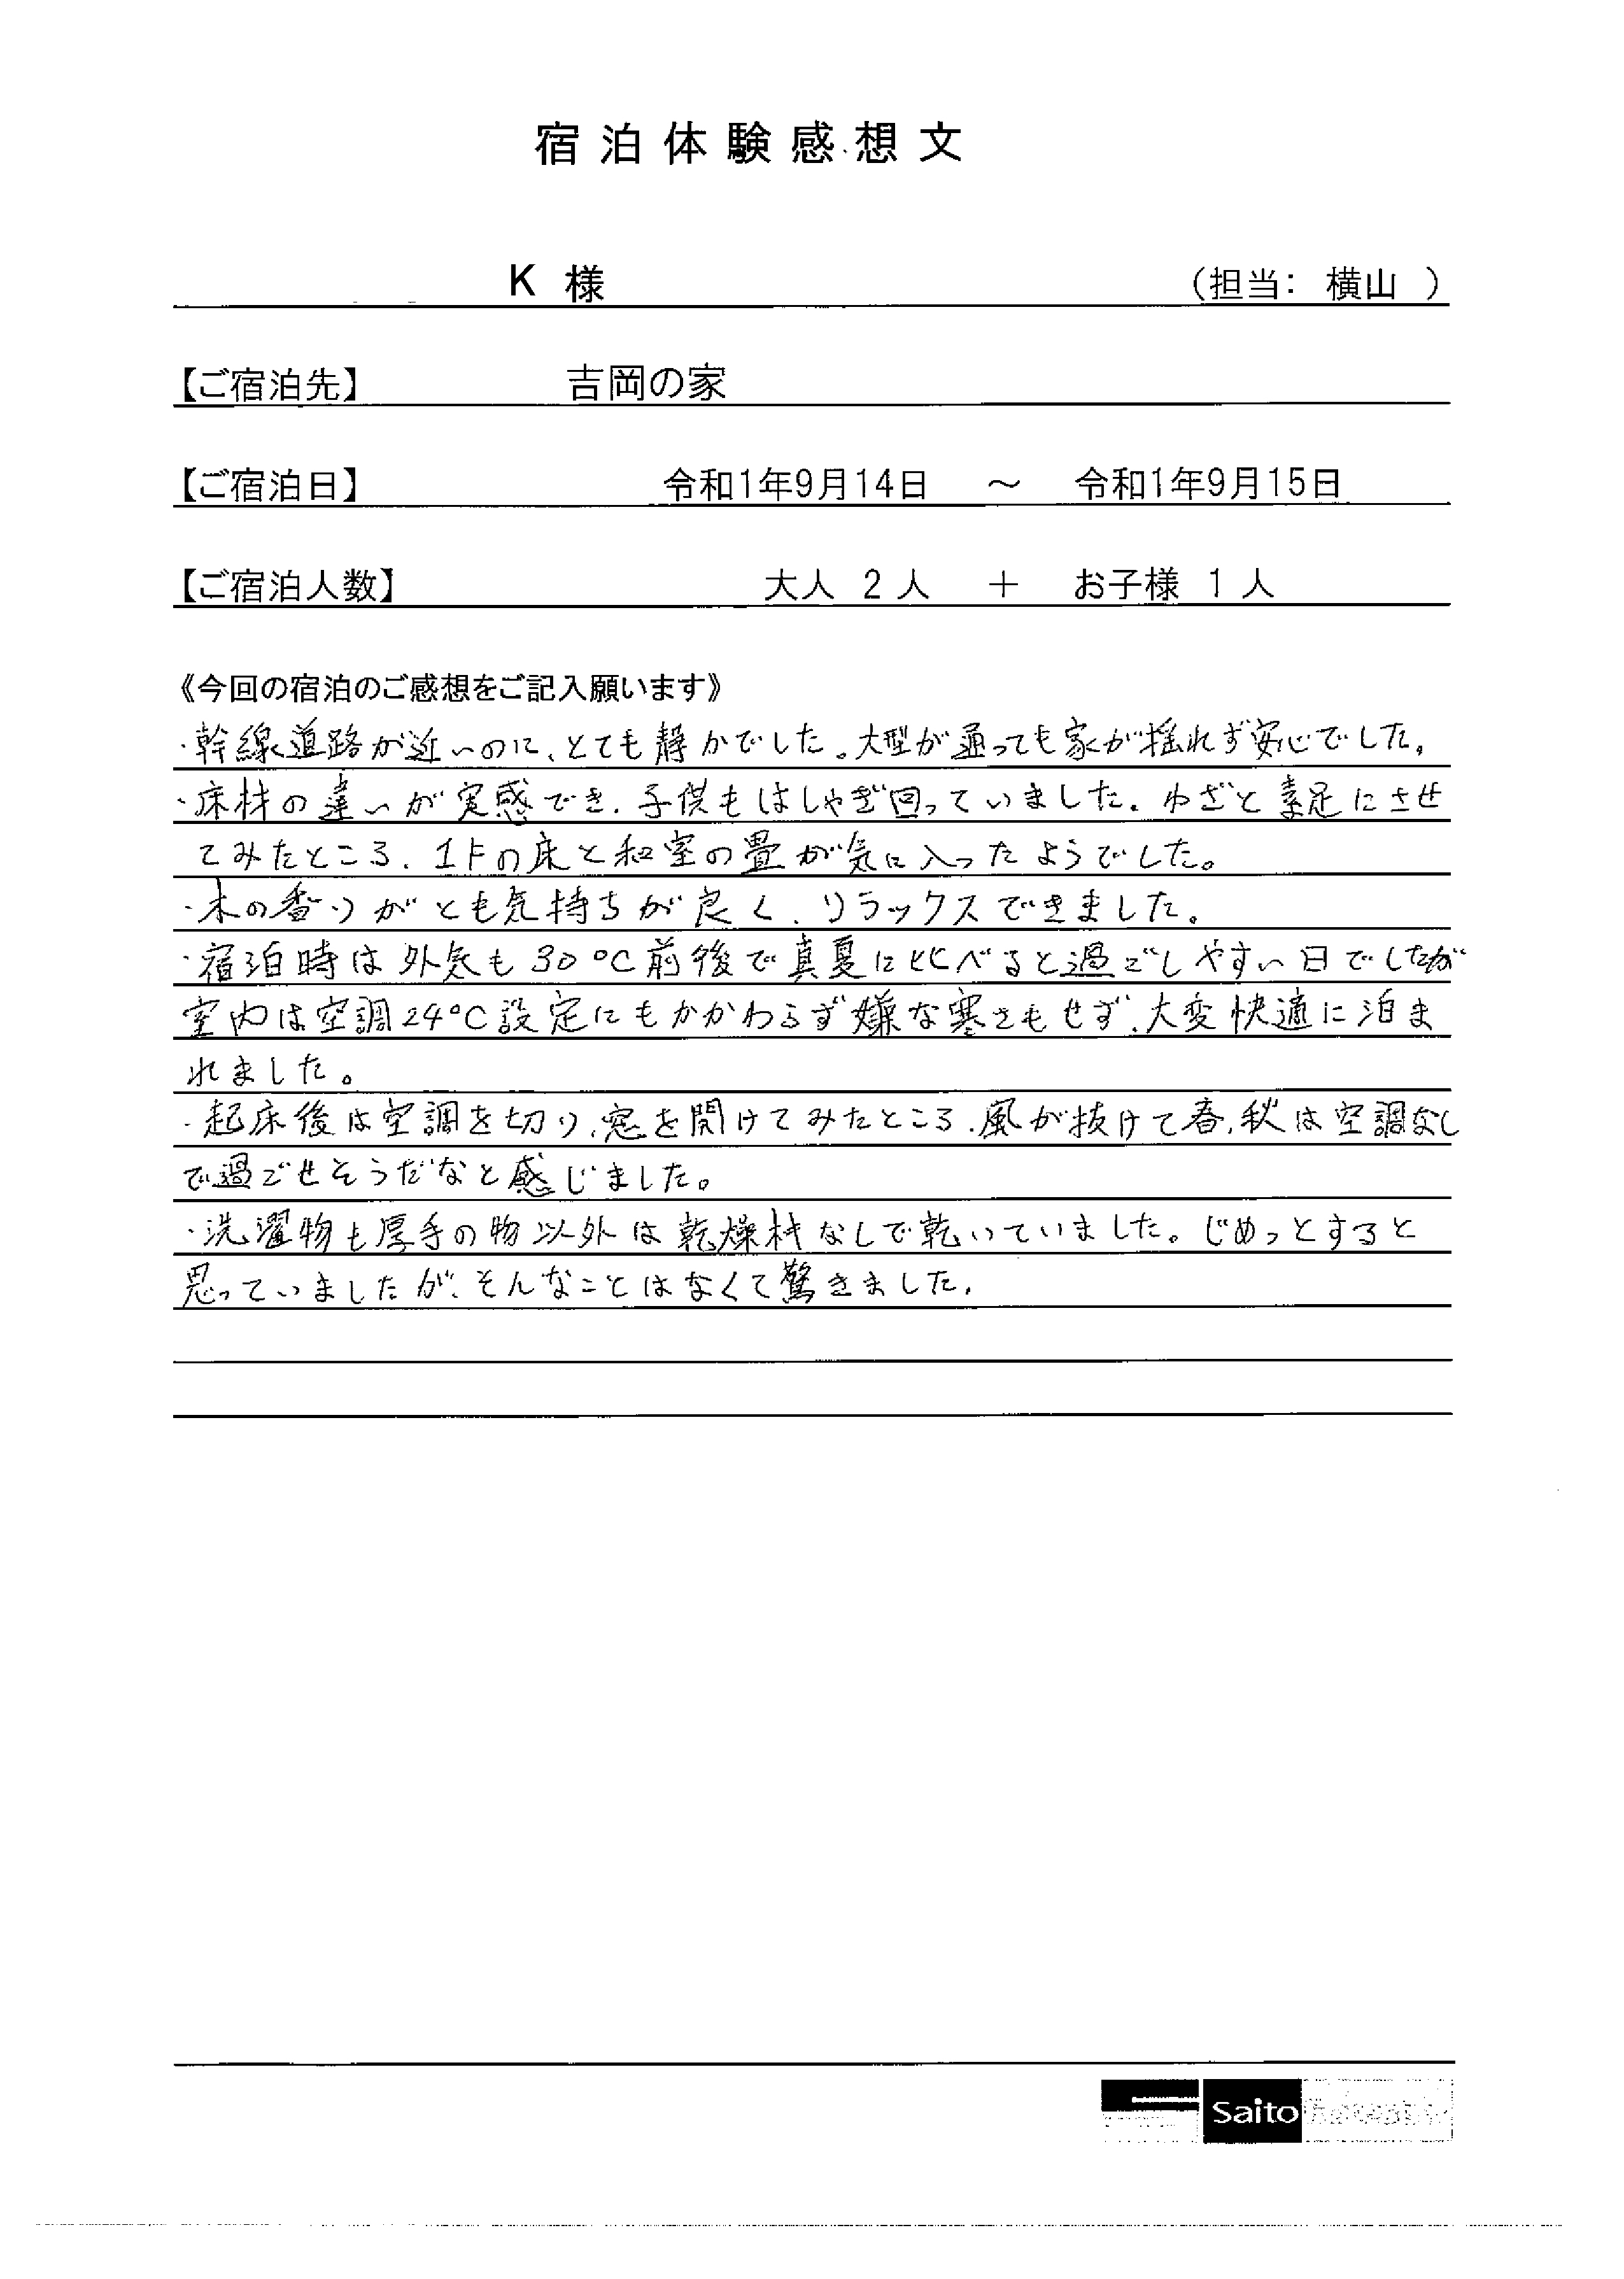 宿泊体験感想文
K 様 (担当: 横山 )
【ご宿泊先】 吉岡の家
【ご宿泊日】 令和1年9月14日 ～ 令和1年9月15日
【ご宿泊人数】 大人 2 人 ＋ お子様 1 人
《今回の宿泊のご感想をご記入願います》
・幹線道路が近いのに、とても静かでした。大型が通っても家が揺れず安心でした。
・床材の違いが実感でき、子供もはしゃぎ回っていました。わざと素足にさせ
てみたところ、1Fの床と和室の畳が気に入ったようでした。
・木の香りがとも気持ちが良く、リラックスできました。
・宿泊時は外気も30℃前後で真夏に比べると過ごしやすい日でしたが
室内は空調24℃設定にもかかわらず嫌な寒さもせず、大変快適に泊ま
れました。
・起床後は空調を切り、窓を開けてみたところ、風が抜けて春、秋は空調なし
で過ごせそうだなと感じました。
・洗濯物も厚手の物以外は乾燥材なしで乾いていました。じめっとすると
思っていましたが、そんなことはなくて驚きました。
Saito